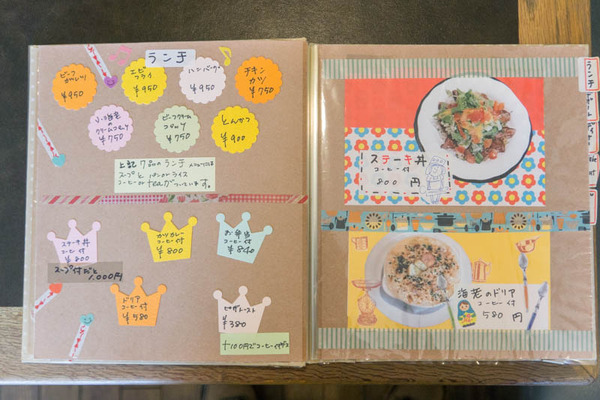 ランチ
ビーフ
カツレツ
¥950
エビ
フライ
¥950
ハンバーグ
¥950
チキン
カツ
¥750
クリームコロッケ
¥750
ビーフクリーム
コロッケ
¥750
とんかつ
¥900
上記7品のランチ
スープと パンorライス
コーヒーorteaがついています。
ステーキ丼
コーヒー付
¥800
スープ付だと
1,000円
カツカレー
コーヒー付
¥800
お弁当
コーヒー付
¥840
ドリア
コーヒー付
¥580
ピザトースト
¥380
+100円でコーヒー付
ステーキ丼
コーヒー付
800円
海老のドリア
コーヒー付
580円
ランチ